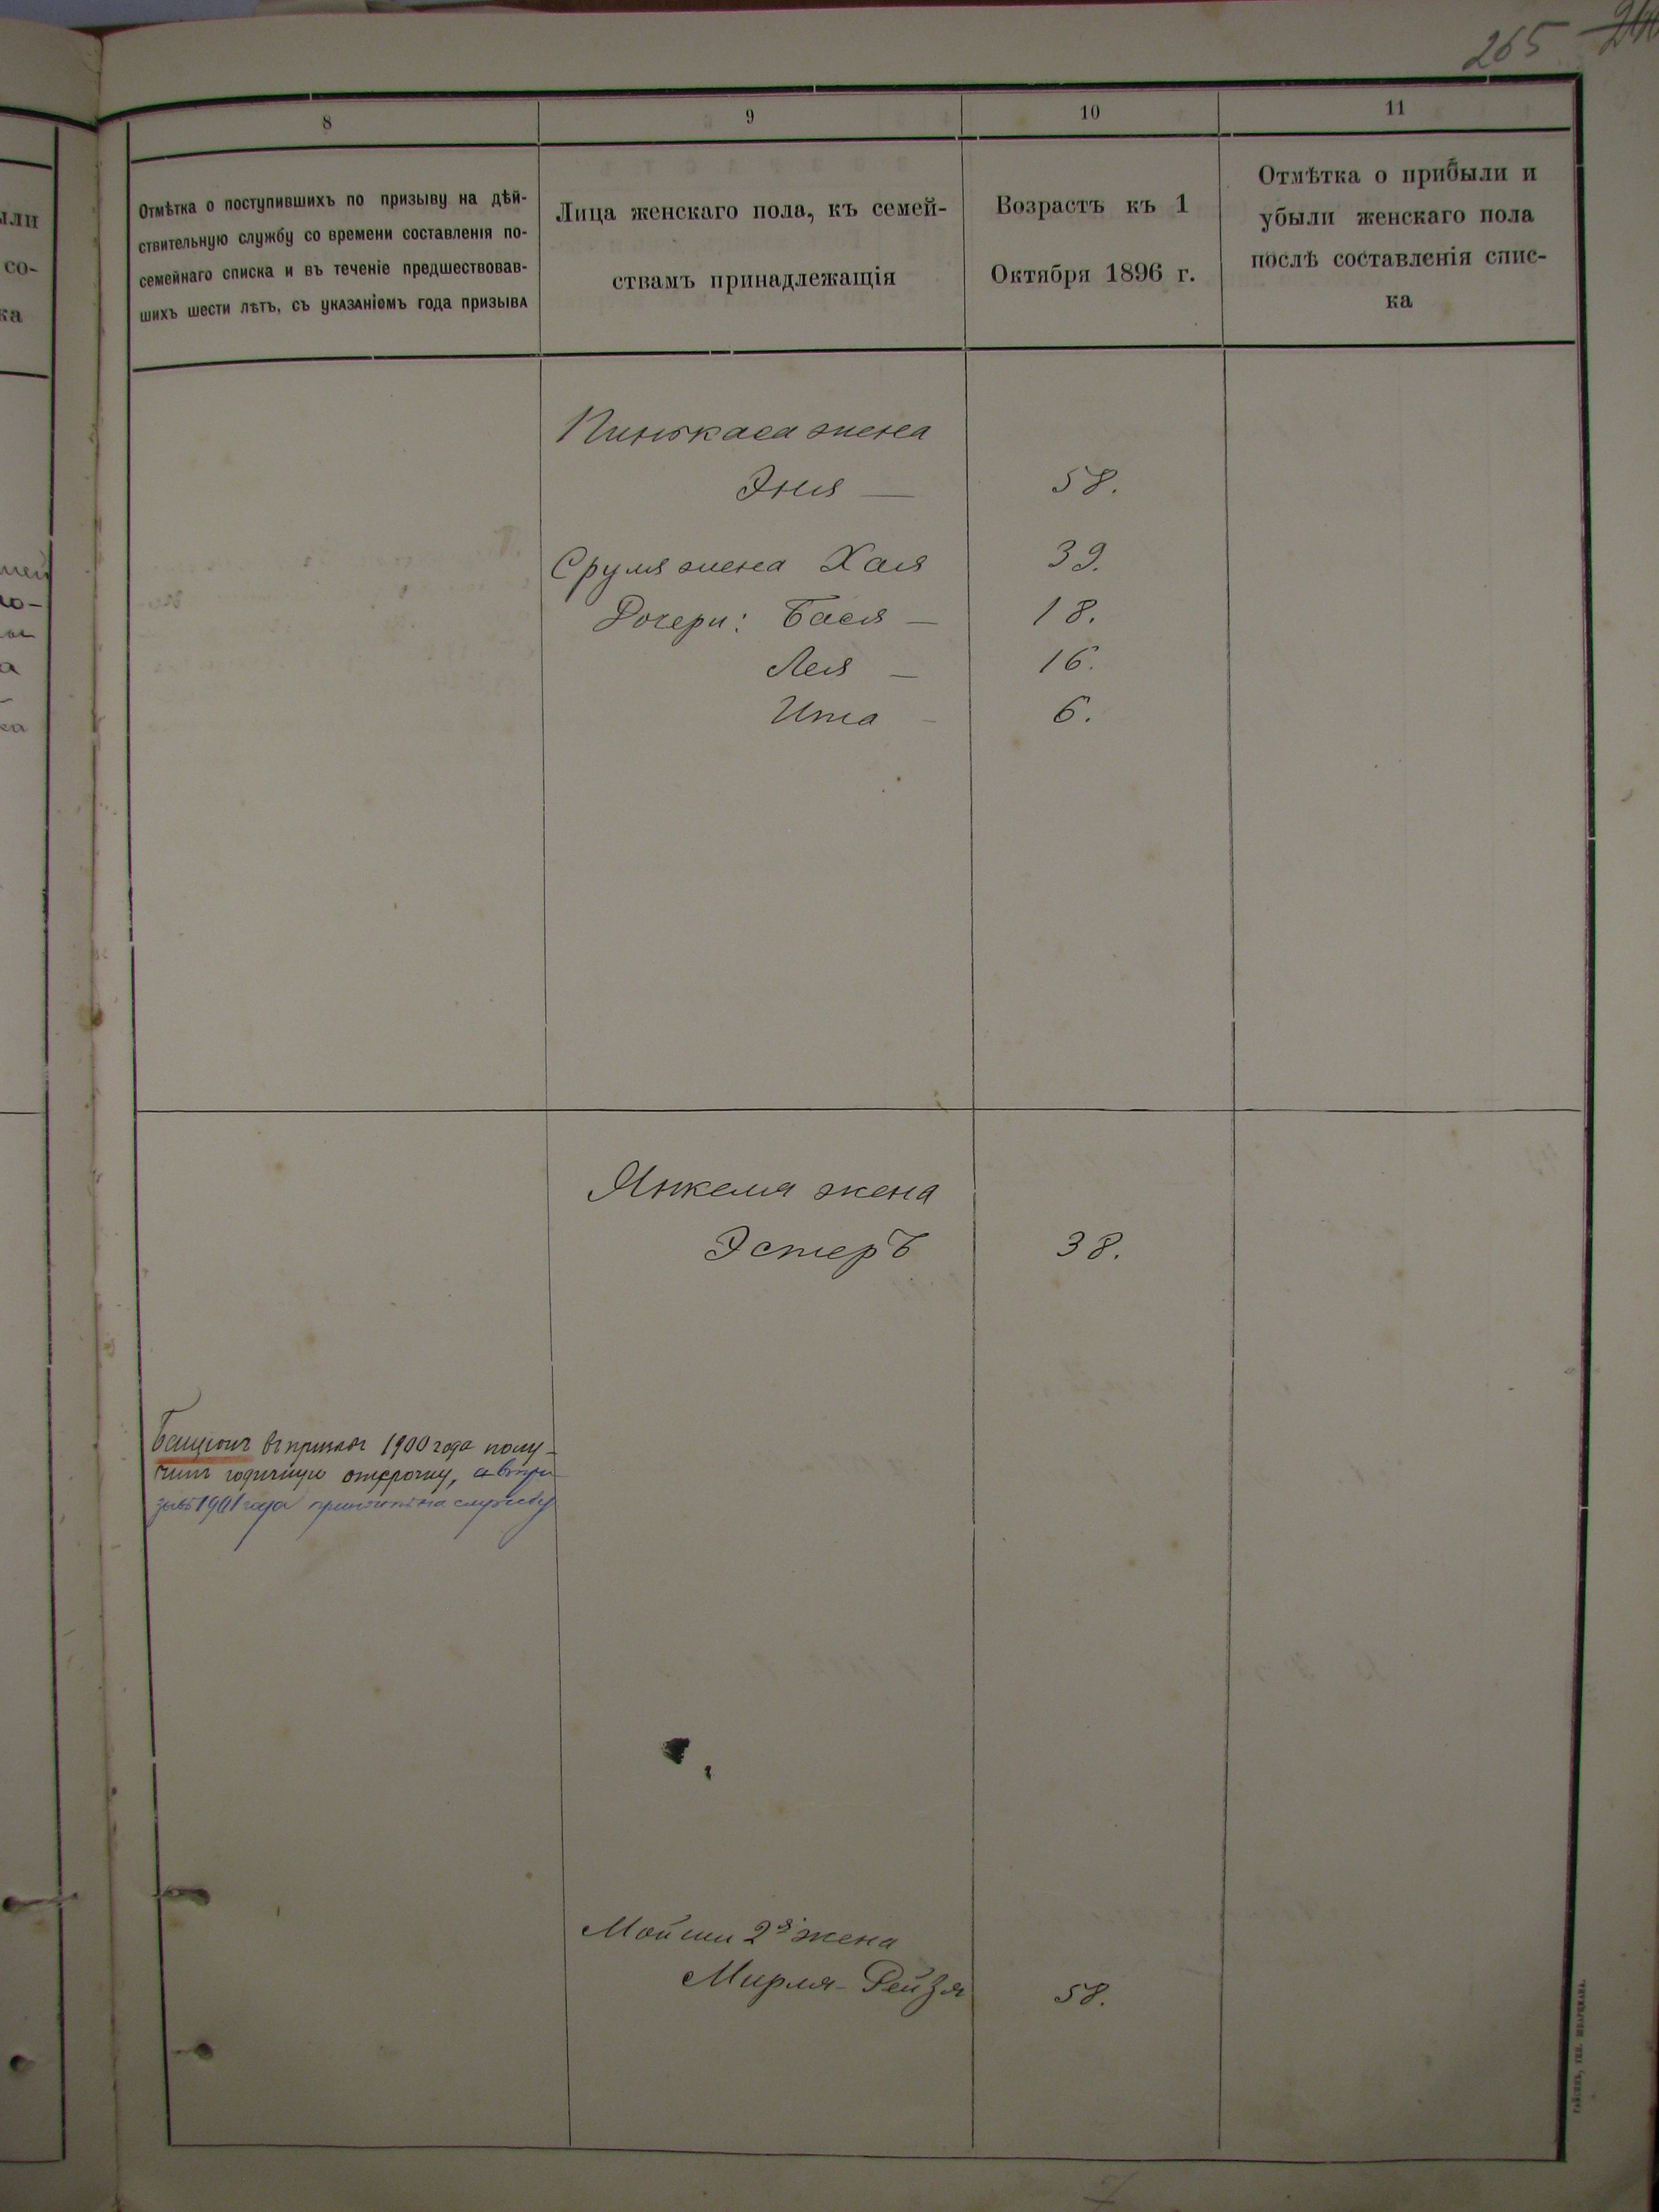 265
8
9
10
11
Отмѣтка о поступившихъ по призыву на дѣй-
ствительную службу со времени составленія по-
семейнаго списка и въ теченіе предшествовав-
шихъ шести лѣтъ, съ указаніемъ года призыва
Лица женскаго пола, къ семей-
ствамъ принадлежащія
Возрастъ къ 1
Октября 1896 г.
Отмѣтка о прибыли и
убыли женскаго пола
послѣ составленія спис-
ка
Пинькаса жена
Эня — 58.
Сруля жена Хая 39.
Дочери: Бася — 18.
Лея — 16.
Ита — 6.
Янкеля жена
Эстеръ 38.
Бенціонъ въ призывѣ 1900 года полу-
чилъ годичную отсрочку, а въ при
зывъ 1901 года принятъ на службу
Мойши 2я жена
Мирля-Рейзя 58.